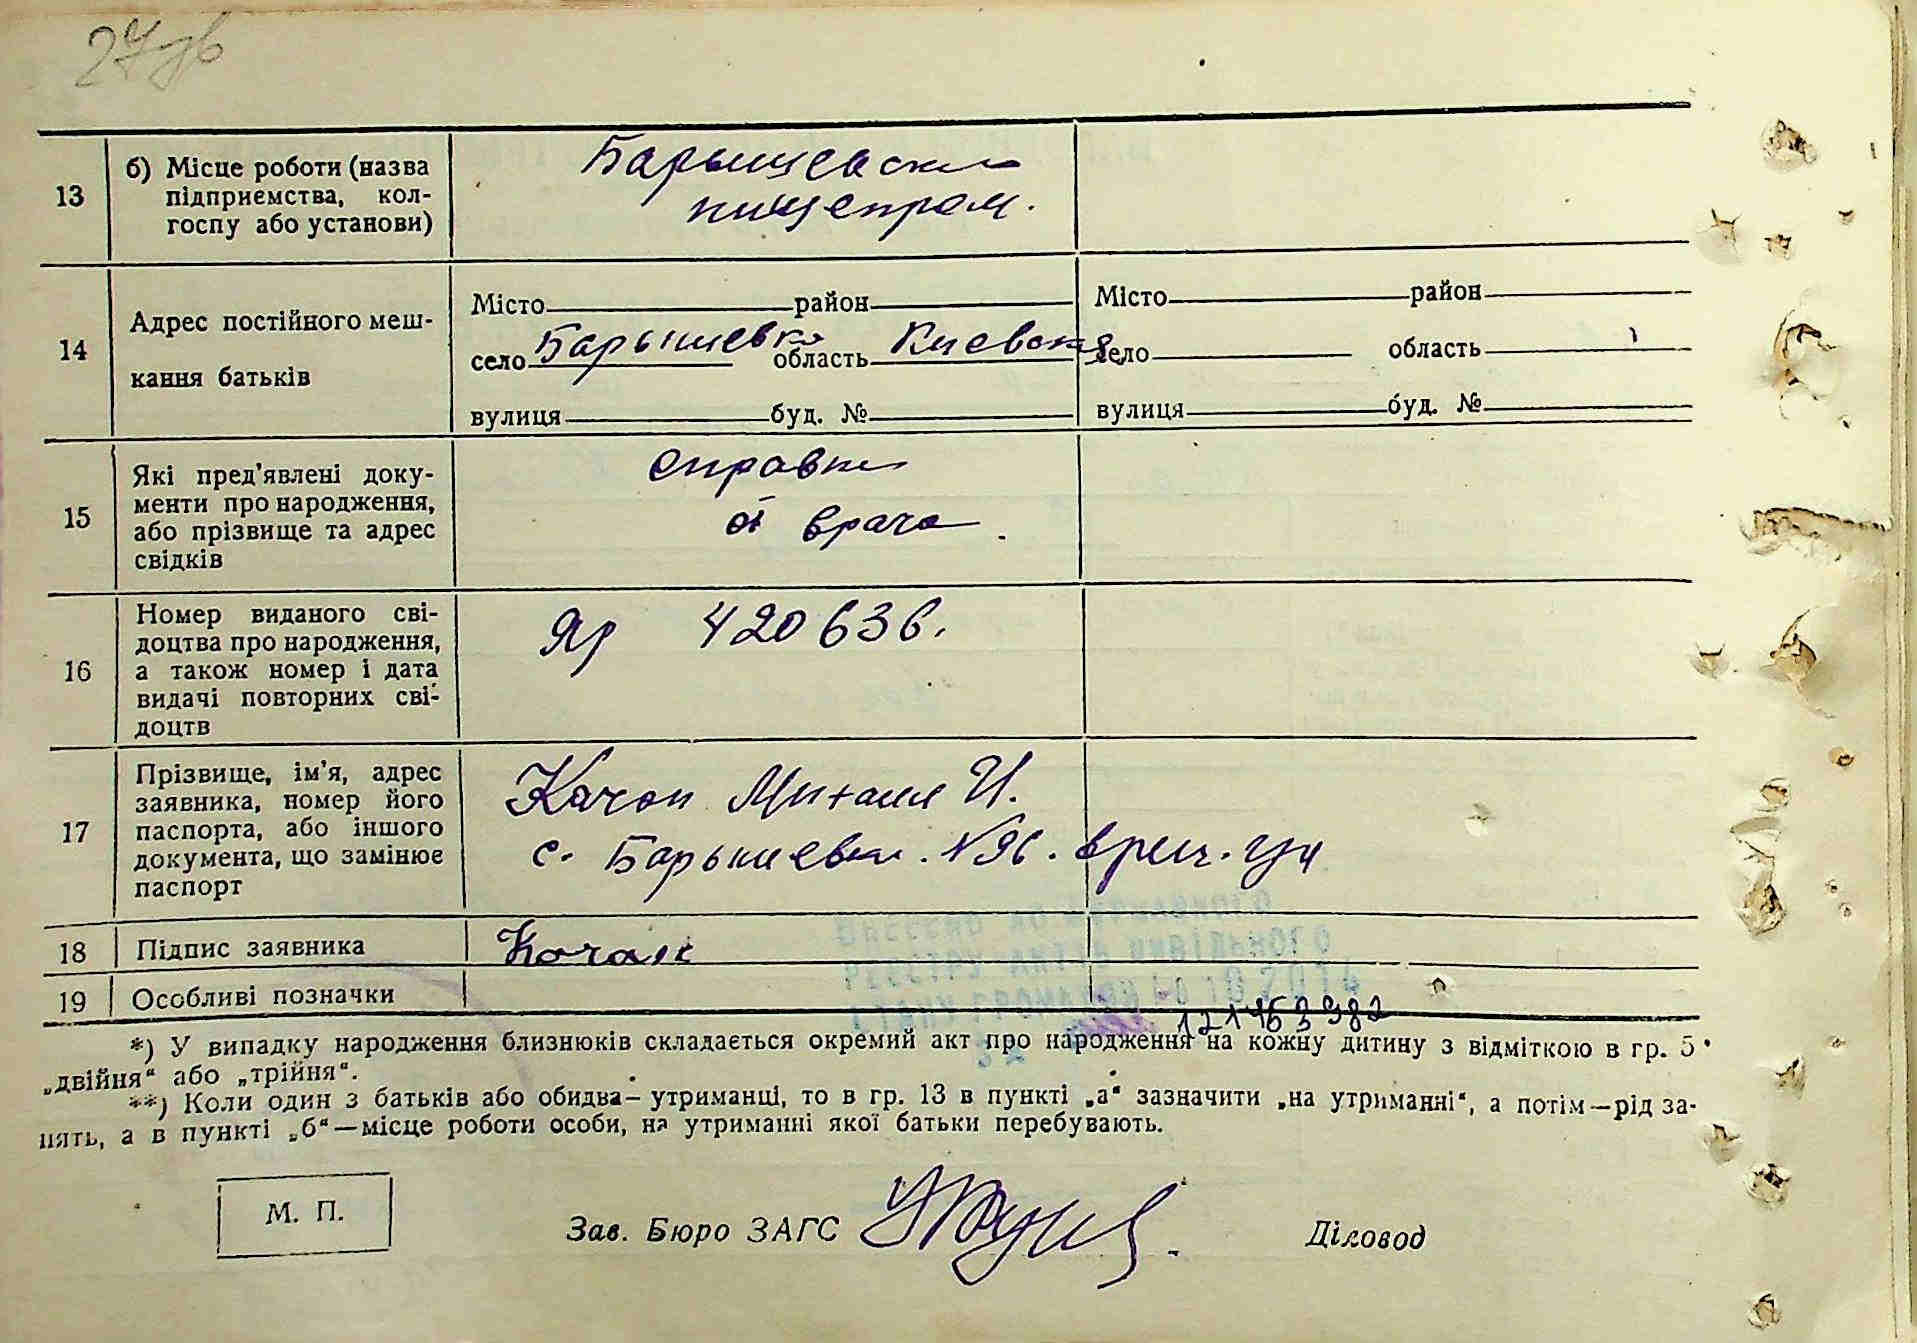 27
13
б) Місце роботи (назва
підприємства, кол-
госпу або установи)
Барышевски
пищепром.
14
Адрес постійного меш-
кання батьків
Місто район
село Барышевка область Киевская
вулиця буд. №
Місто район
село область
вулиця буд. №
15
Які пред'явлені доку-
менти про народження,
або прізвище та адрес
свідків
справка
от врача.
16
Номер виданого сві-
доцтва про народження,
а також номер і дата
видачі повторних сві-
доцтв
Яр 420636.
17
Прізвище, ім'я, адрес
заявника, номер його
паспорта, або іншого
документа, що замінює
паспорт
Качан Михаил И.
с. Барышевка. №96.
18
Підпис заявника
Качан
19
Особливі позначки
Внесено до Державного
реєстру актів цивільного
стану громадян
*) У випадку народження близнюків складається окремий акт про народження на кожну дитину з відміткою в гр. 5
„двійня“ або „трійня“.
**) Коли один з батьків або обидва—утриманці, то в гр. 13 в пункті „а“ зазначити „на утриманні“, а потім—рід за-
нять, а в пункті „б“—місце роботи особи, на утриманні якої батьки перебувають.
М. П.
Зав. Бюро ЗАГС
Діловод